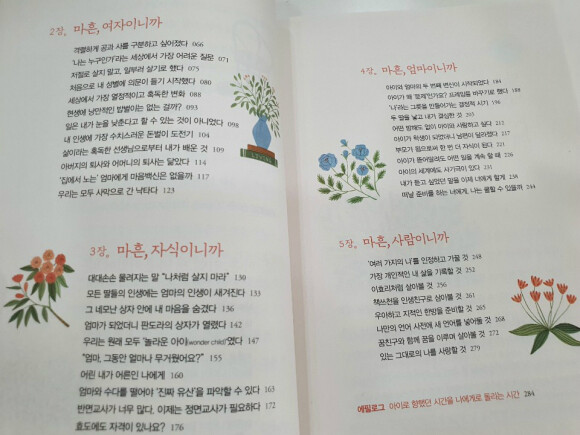 2장. 마흔, 여자이니까
격렬하게 공과 사를 구분하고 싶어졌다 066
'나는 누구인가'라는 세상에서 가장 어려운 질문 071
저절로 살지 말고, 일부러 살기로 했다 075
처음으로 내 성별에 의문이 들기 시작했다 080
세상에서 가장 열정적이고 혹독한 변화 088
현생에 낭만적인 밥벌이는 없는 걸까? 093
일은 내가 눈을 낮춘다고 할 수 있는 것이 아니었다 098
내 인생에 가장 수치스러운 돈벌이 도전기 104
삶이라는 혹독한 선생님으로부터 내가 배운 것 109
아버지의 퇴사와 어머니의 퇴사는 닮았다 114
'집에서 노는' 엄마에게 마음백신은 없을까 117
우리는 모두 사막으로 간 낙타다 123
3장. 마흔, 자식이니까
대대손손 물려지는 말 "나처럼 살지 마라" 130
모든 딸들의 인생에는 엄마의 인생이 새겨진다 133
그 네모난 상자 안에 내 마음을 숨겼다 136
엄마가 되었더니 판도라의 상자가 열렸다 142
우리는 원래 모두 '놀라운 아이(wonder child)'였다 147
"엄마, 그동안 얼마나 무거웠어요?" 155
어린 내가 어른인 나에게 160
엄마와 수다를 떨어야 '진짜 유산'을 파악할 수 있다 163
반면교사가 너무 많다, 이제는 정면교사가 필요하다 172
효도에도 자격이 있나요? 176
4장. 마흔, 엄마이니까
아이와 엄마의 두 번째 변신이 시작되었다 184
아이가 왜 '문제'인가요? 프레임을 바꾸기로 했다 188
'나'라는 그릇을 만들어가는 결정적 시기 196
두 딸을 낳고 내가 결심한 것 202
어떤 방해도 없이 아이와 사랑하고 싶다 212
아이가 학생이 되었더니 남편이 달라졌다 217
부모가 됨으로써 한 번 더 자식이 된다 221
아이가 뜯어말려도 어떤 일을 계속 할 때 226
아이의 세계에도 사기극이 있다 231
내가 듣고 싶었던 말을 이제 너에게 할게 236
떠날 준비를 하는 너에게, 나는 뭘할 수 있을까 244
5장. 마흔, 사람이니까
'여러 가지의 나'를 인정하고 가꿀 것 248
가장 개인적인 내 삶을 기록할 것 252
이효리처럼 살아볼 것 256
책쓰천을 인생친구로 삼아볼 것 261
우아하고 지적인 한방을 준비할 것 265
나만의 언어 사전에 새 언어를 넣어둘 것 268
꿈친구와 함께 꿈을 이루며 살아볼 것 272
있는 그대로의 나를 사랑할 것 279
에필로그 아이로 향했던 시간을 나에게로 돌리는 시간 284